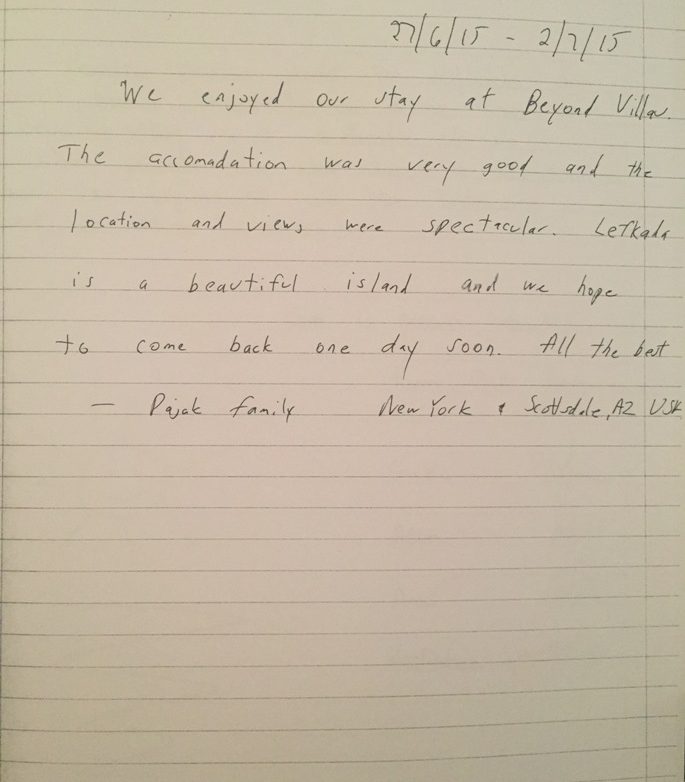 27/6/15 - 2/7/15
We enjoyed our stay at Beyond Villas.
The accomadation was very good and the
location and views were spectacular. Lefkada
is a beautiful island and we hope
to come back one day soon. All the best
— Pajak family New York & Scottsdale, AZ USA